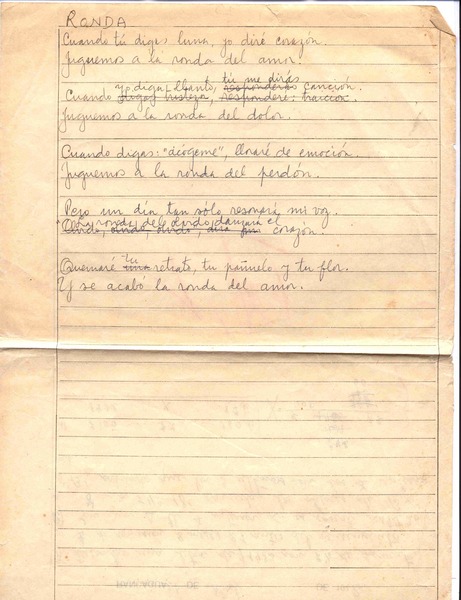 RONDA
Cuando tú digas luna, yo diré corazón.
Juguemos a la ronda del amor.
yo diga: llanto, tú me dirás
Cuando digas tristeza, responderé: traición. canción.
Juguemos a la ronda del dolor.
Cuando digas: "acógeme", lloraré de emoción.
Juguemos a la ronda del perdón.
Pero un día, tan sólo resonará mi voz.
En la ronda del olvido danzará el
Olvido, olvido, olvido, dirá corazón.
tu
Quemaré una retrato, tu pañuelo y tu flor.
Y se acabó la ronda del amor.